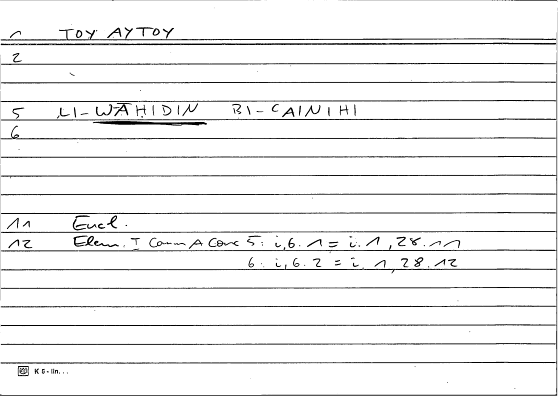 1 TOY AYTOY
2
5 LI-WĀḤIDIN BI-ʿAINIHI
6
11 Eucl.
12 Elem. I Comm A Conc 5: i,6.1 = i. 1,28.11
6: i,6.2 = i. 1,28.12
K 6 - lin...